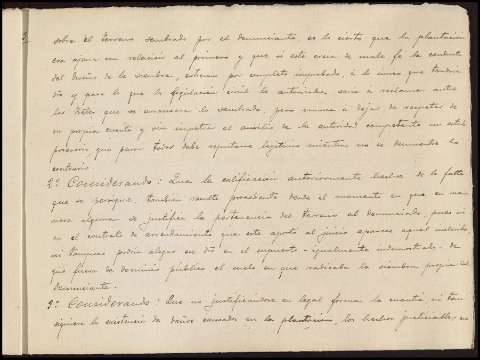 sobre el terreno sembrado por el denunciante, es lo cierto que la plantación
era ajena con relación al primero y que si este creia de mala fé la conducta
del dueño de la siembra, estremo por completo improbado, á lo único que tendria
dro y para lo que la legislación civil le autorizaba, seria á reclamar ante
los Jueces que se arrancara lo sembrado, pero nunca á dejar de respetar de
su propia cuenta y sin impetrar el auxilio de la autoridad competente un estado
posesorio que para todos debe reputarse legítimo mientras no se demuestre lo
contrario.
2º Considerando: Que la calificación anteriormente hecha de la falta
que se persigue, tambien resulta procedente desde el momento en que en ma-
nera alguna se justificó la pertenencia del terreno al denunciado, pues ni
en el contrato de arrendamiento que este aportó al juicio aparece aquel incluido,
ni tampoco podria alegar su dro en el supuesto - igualmente indemostrado - de
que fuera de dominio público el suelo en que radicaba la siembra propia del
denunciante.
3º Considerando: Que no justificándose en legal forma la cuantía, ni tan
siquiera la existencia de daños causados en la plantación, los hechos justiciables, en